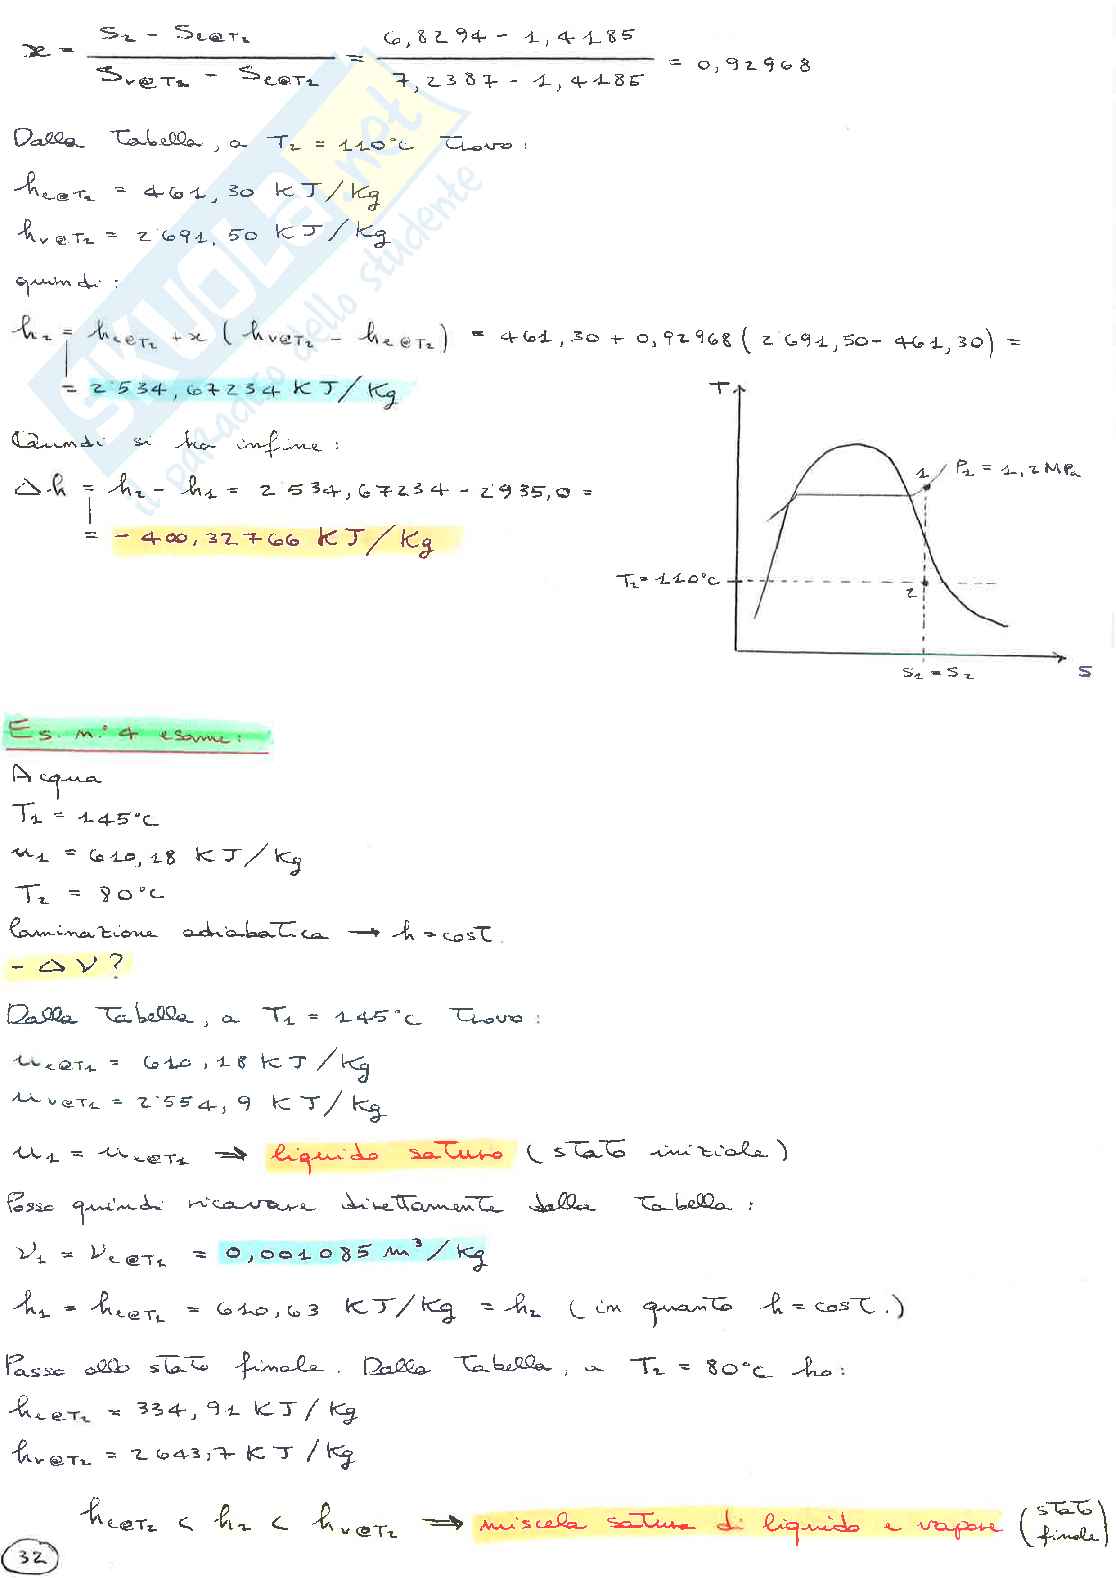 x = (S₂ - Sℓ@T₂) / (Sv@T₂ - Sℓ@T₂) = (6,8294 - 1,4185) / (7,2387 - 1,4185) = 0,92968
Dalla Tabella, a T₂ = 110°C trovo:
hℓ@T₂ = 461,30 KJ/Kg
hv@T₂ = 2'691,50 KJ/Kg
quindi:
h₂ = hℓ@T₂ + x (hv@T₂ - hℓ@T₂) = 461,30 + 0,92968 (2'691,50 - 461,30) =
= 2'534,67234 KJ/Kg
Quindi si ha infine:
Δh = h₂ - h₁ = 2'534,67234 - 2'935,0 =
= - 400,32766 KJ/Kg
T
1
P₁ = 1,2 MPa
T₂ = 110°C
2
S₁ = S₂
S
Es. n.° 4 esame:
Acqua
T₁ = 145°C
u₁ = 610,18 KJ/Kg
T₂ = 80°C
laminazione adiabatica → h = cost.
- Δν?
Dalla Tabella, a T₁ = 145°C trovo:
uℓ@T₁ = 610,18 KJ/Kg
uv@T₁ = 2'554,9 KJ/Kg
u₁ = uℓ@T₁ ⇒ liquido saturo (stato iniziale)
Posso quindi ricavare direttamente dalla Tabella:
ν₁ = νℓ@T₁ = 0,001085 m³/Kg
h₁ = hℓ@T₁ = 610,63 KJ/Kg = h₂ (in quanto h = cost.)
Passo allo stato finale. Dalla Tabella, a T₂ = 80°C ho:
hℓ@T₂ = 334,91 KJ/Kg
hv@T₂ = 2643,7 KJ/Kg
hℓ@T₂ < h₂ < hv@T₂ ⇒ miscela satura di liquido e vapore (stato finale)
32
SKUOLA.net
il paradiso dello studente